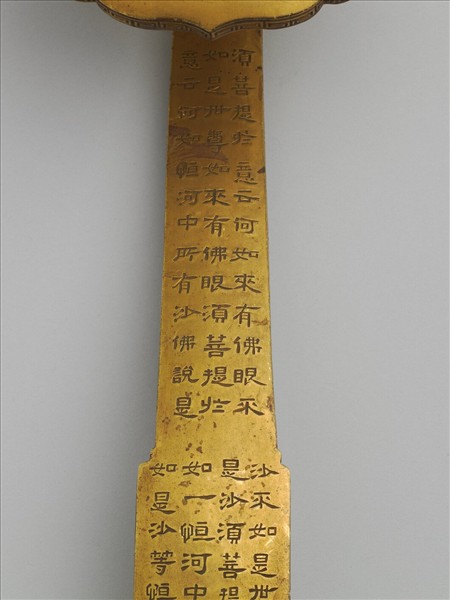 須菩提於意云何如來有佛眼不
如是世尊如來有佛眼須菩提於
意云何如恒河中所有沙佛說是
沙不如是世
是沙須菩提
如一恒河中
如是沙等恒